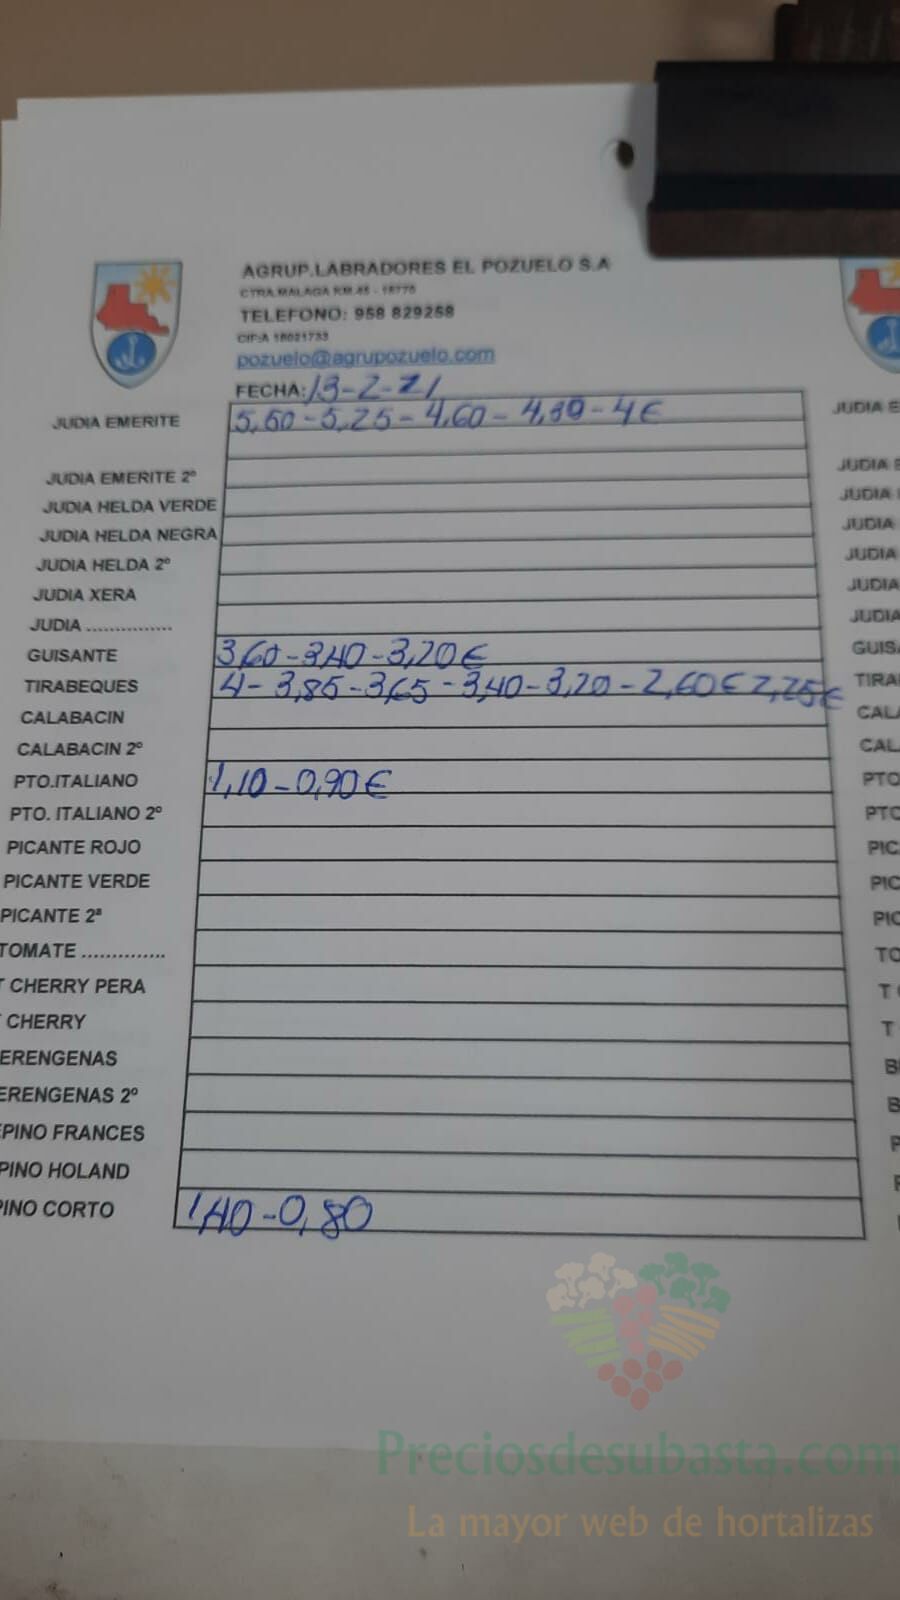 AGRUP.LABRADORES EL POZUELO S.A
CTRA.MALAGA KM.45 - 18770
TELEFONO: 958 829258
CIF:A 18021733
pozuelo@agrupozuelo.com
FECHA: 13-2-21
JUDIA EMERITE 5,60-5,25-4,60-4,30-4€ JUDIA E
JUDIA EMERITE 2º JUDIA E
JUDIA HELDA VERDE JUDIA
JUDIA HELDA NEGRA JUDIA
JUDIA HELDA 2º JUDIA
JUDIA XERA JUDIA
JUDIA ............... JUDIA
GUISANTE 3,60-3,40-3,20€ GUISA
TIRABEQUES 4-3,85-3,65-3,40-3,20-2,60€ 2,25€ TIRA
CALABACIN CALA
CALABACIN 2º CAL
PTO.ITALIANO 1,10-0,90€ PTO
PTO. ITALIANO 2º PTO
PICANTE ROJO PIC
PICANTE VERDE PIC
PICANTE 2ª PIC
TOMATE .............. TO
T CHERRY PERA T C
T CHERRY T
ERENGENAS B
ERENGENAS 2º B
EPINO FRANCES P
PINO HOLAND
PINO CORTO 1,40-0,80
Preciosdesubasta.com
La mayor web de hortalizas